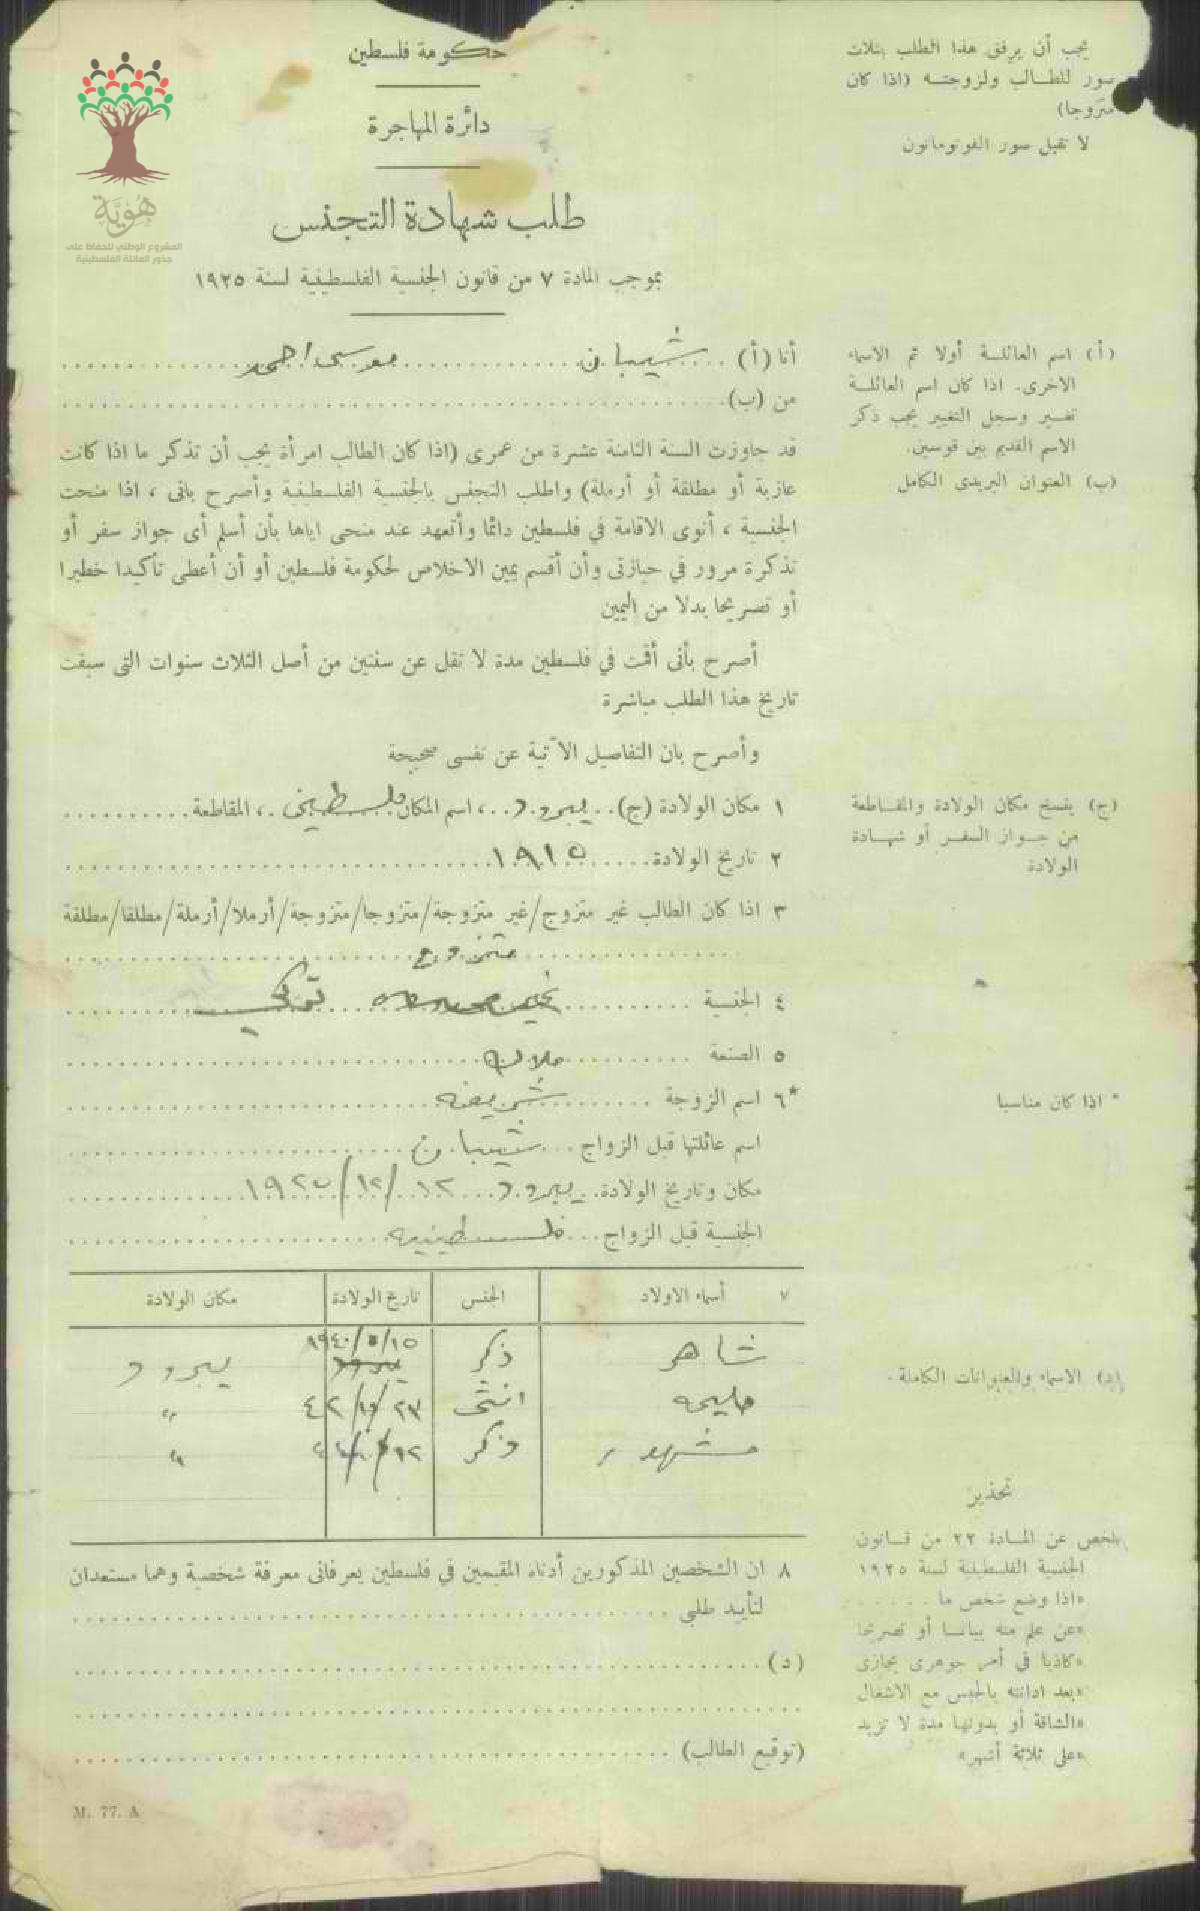 حكومة فلسطين
دائرة المهاجرة
طلب شهادة التجنس
بموجب المادة ٧ من قانون الجنسية الفلسطينية لسنة ١٩٢٥
يجب أن يرفق هذا الطلب بثلاث
صور للطالب ولزوجته (اذا كان
متزوجا)
لا تقبل صور الفوتوماتون
هُوِيَّة
المشروع الوطني للحفاظ على
جذور العائلة الفلسطينية
أنا (أ) شيبان موسى احمد
من (ب)
(أ) اسم العائلة أولا ثم الاسماء
الاخرى. اذا كان اسم العائلة
تغير وسجل التغيير يجب ذكر
الاسم القديم بين قوسين.
(ب) العنوان البريدى الكامل
قد جاوزت السنة الثامنة عشرة من عمرى (اذا كان الطالب امرأة يجب أن تذكر ما اذا كانت
عازبة أو مطلقة أو أرملة) واطلب التجنس بالجنسية الفلسطينية وأصرح بانى ، اذا منحت
الجنسية ، أنوى الاقامة في فلسطين دائما وأتعهد عند منحى اياها بأن أسلم أى جواز سفر أو
تذكرة مرور في حيازتى وأن أقسم يمين الاخلاص لحكومة فلسطين أو أن أعطى تأكيدا خطيرا
أو تصريحا بدلا من اليمين
أصرح بأنى أقمت في فلسطين مدة لا تقل عن سنتين من أصل الثلاث سنوات التى سبقت
تاريخ هذا الطلب مباشرة
وأصرح بان التفاصيل الآتية عن نفسى صحيحة
١ مكان الولادة (ج) يبرود ، اسم المكان فلسطيني ، المقاطعة
(ج) ينسخ مكان الولادة والمقاطعة
من جواز السفر أو شهادة
الولادة
٢ تاريخ الولادة ١٩١٥
٣ اذا كان الطالب غير متزوج/غير متزوجة/متزوجا/متزوجة/أرملا/أرملة/مطلقا/مطلقة
متزوج
٤ الجنسية تركي
٥ الصنعة
*٦ اسم الزوجة شريفه
* اذا كان مناسبا
اسم عائلتها قبل الزواج شيبان
مكان وتاريخ الولادة يبرود ١٢/١٢/١٩٢٠
الجنسية قبل الزواج فلسطينيه
٧ أسماء الاولاد الجنس تاريخ الولادة مكان الولادة
شاهر ذكر ١٥/٥/١٩٤٠ يبرود
حليمه انثى ٤٢ "
مشهور ذكر "
(د) الاسماء والعنوانات الكاملة.
تحذير
يلخص عن المادة ٢٢ من قانون
الجنسية الفلسطينية لسنة ١٩٢٥
«اذا وضع شخص ما
«عن علم منه بيانا أو تصريحا
«كاذبا في أمر جوهرى يجازى
«بعد ادانته بالحبس مع الاشغال
«الشاقة أو بدونها مدة لا تزيد
«على ثلاثة أشهر»
٨ ان الشخصين المذكورين أدناه المقيمين في فلسطين يعرفانى معرفة شخصية وهما مستعدان
لتأييد طلبى
(د)
(توقيع الطالب)
M. 77. A